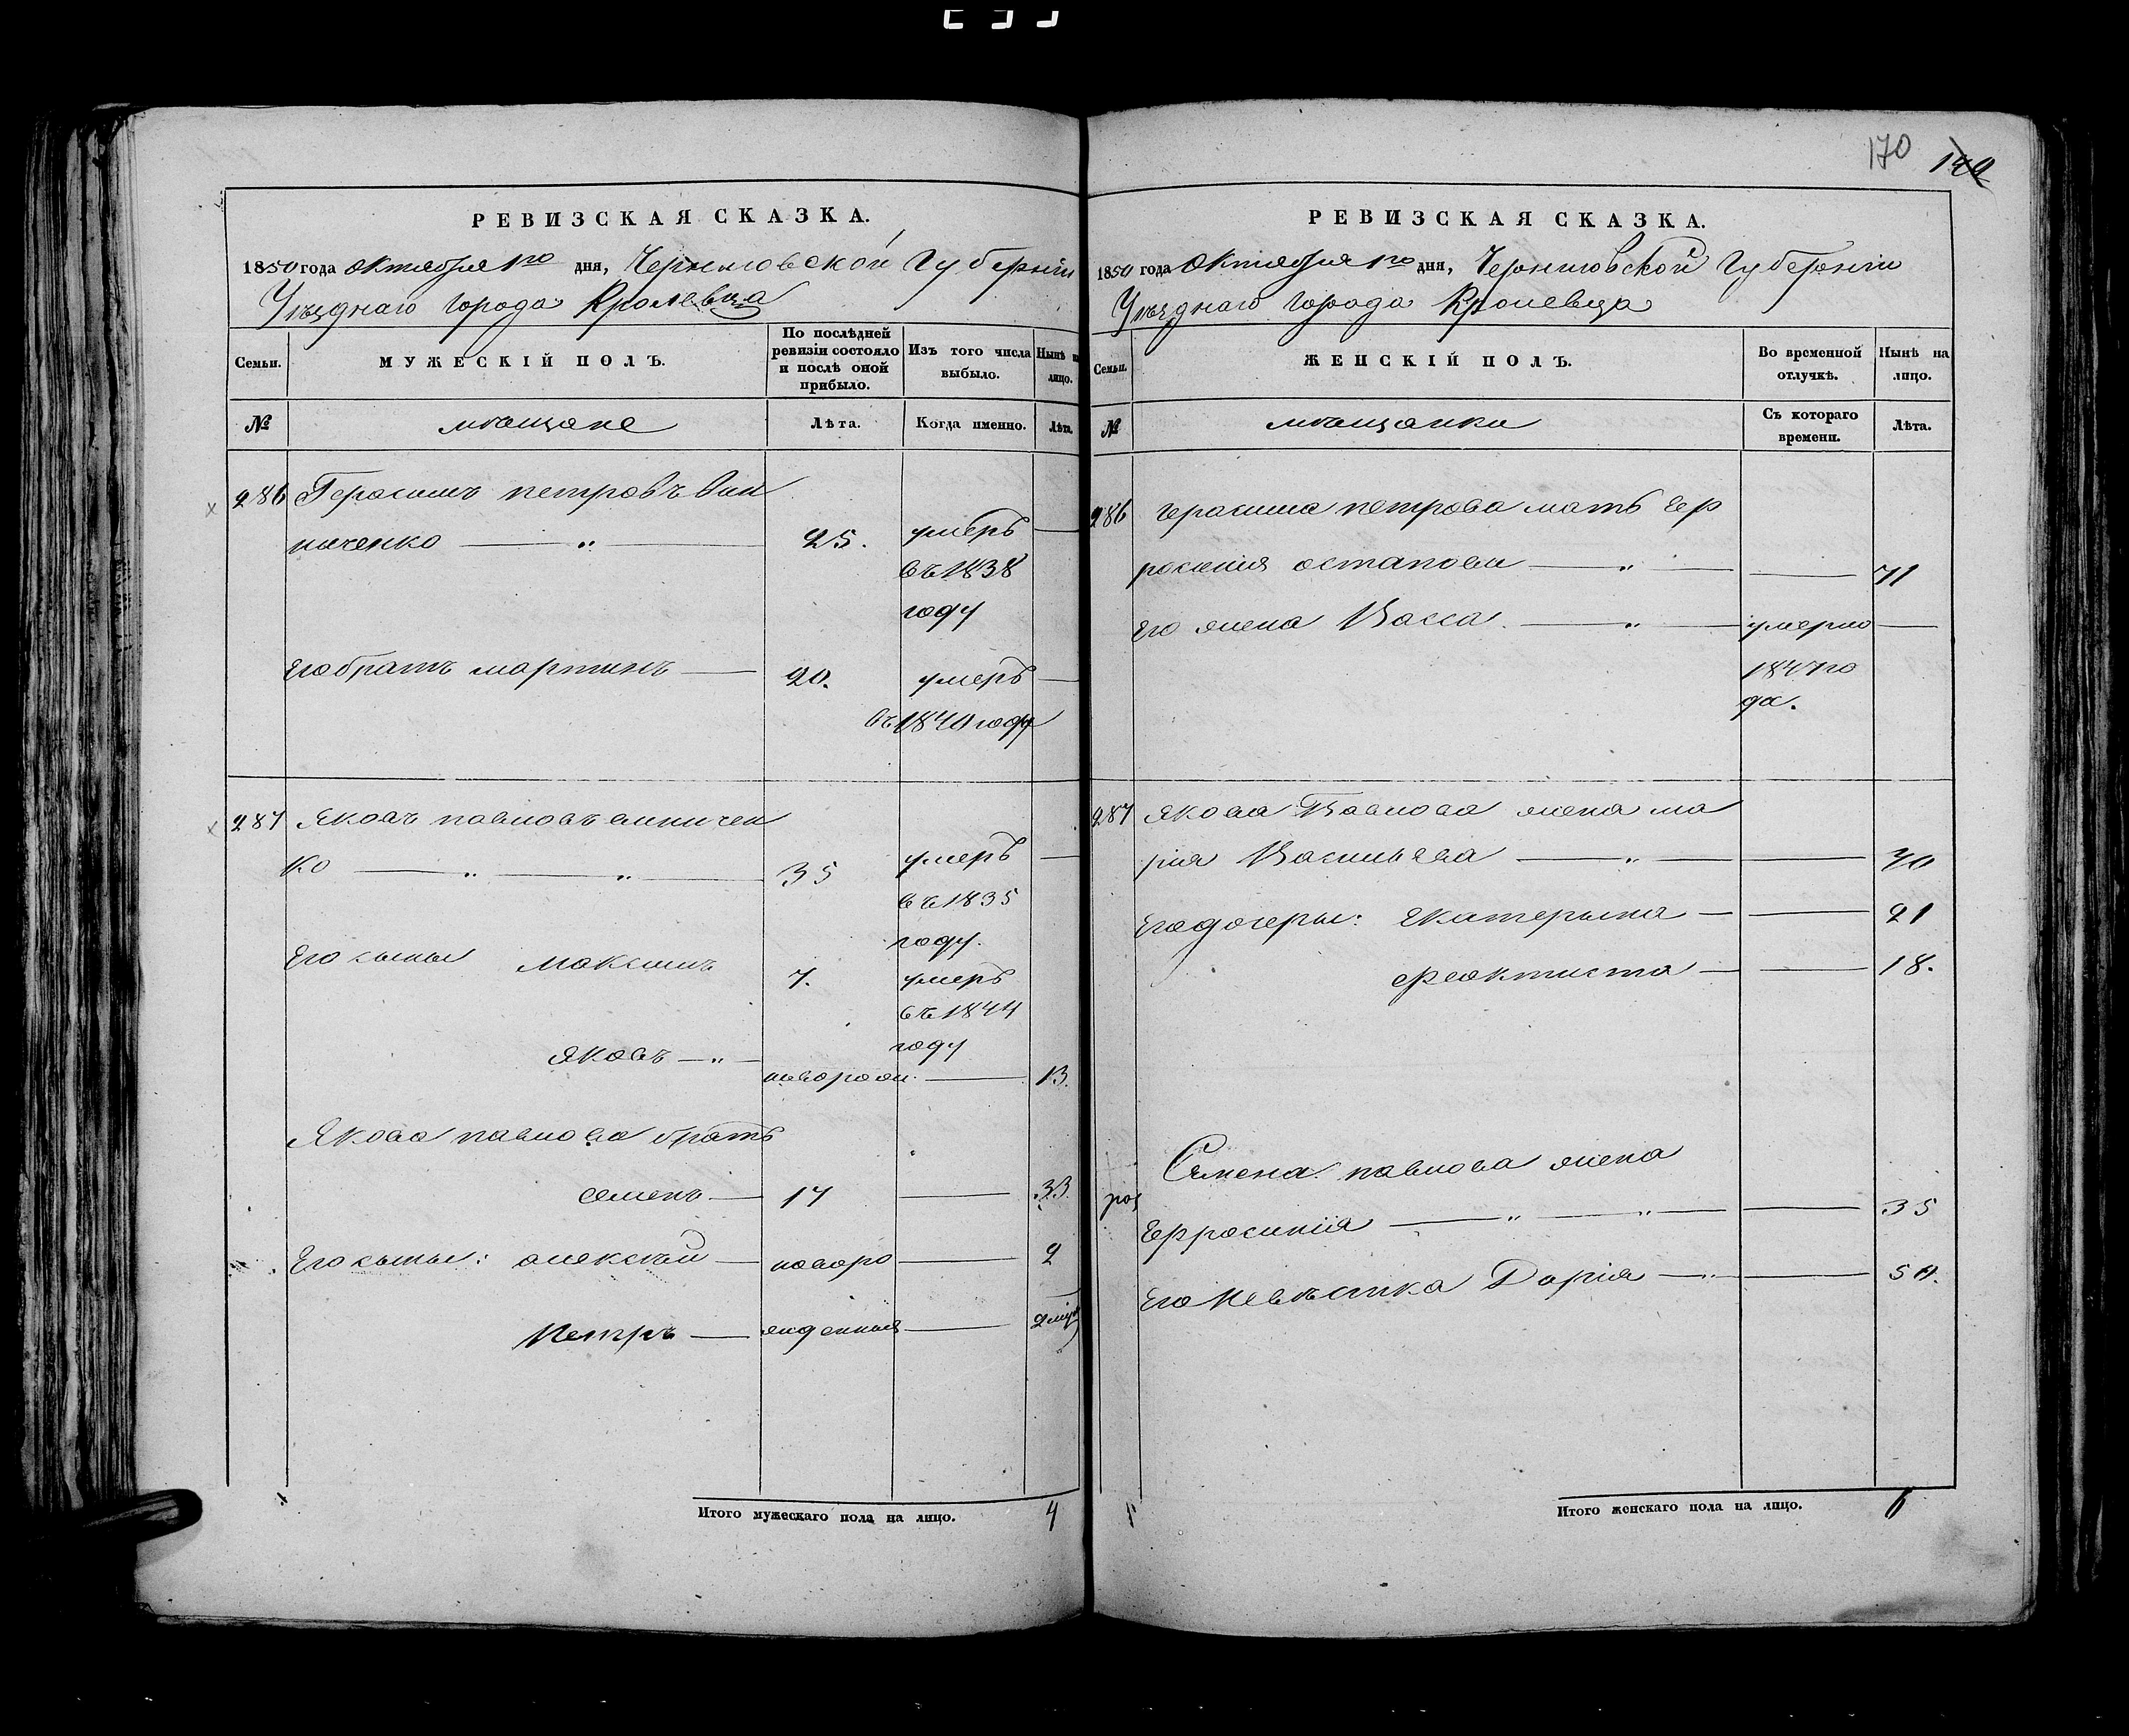 170 149
РЕВИЗСКАЯ СКАЗКА.
1850 года октября 1го дня, Черниговской Губерніи
Уѣзднаго города Кролевца
Семьи. МУЖЕСКІЙ ПОЛЪ. По послѣдней ревизіи состояло и послѣ оной прибыло. Изъ того числа выбыло. Нынѣ на лицо.
№ мѣщане Лѣта. Когда именно. Лѣта.
286 Герасимъ петровъ Вин
ниченко — „ — 25. умеръ —
въ 1838
году
Его братъ мартинъ — 20. умеръ —
въ 1840 году
287 Яковъ павловъ винничен
ко — „ — „ — 35 умеръ —
въ 1835
году.
Его сыны Максимъ 7. умеръ
въ 1844
году
Яковъ — „ — новорожд. — 13.
Якова павлова братъ
Семенъ — 17 — 33.
Его сыны: алексѣй — новоро — 2
Петръ — жденныя — 2 мѣс
Итого мужескаго пола на лицо. 4
РЕВИЗСКАЯ СКАЗКА.
1850 года Октября 1го дня, Черниговской Губерніи
Уѣзднаго города Кролевца
Семьи. ЖЕНСКІЙ ПОЛЪ. Во временной отлучкѣ. Нынѣ на лицо.
№ мѣщанки Съ котораго времени. Лѣта.
286 Герасима петрова мать Еф
росинія остапова — „ — — 71
Его жена Васса. — „ — умерла —
1847 го
да.
287 Якова Павлова жена ма
рія Васильева — „ — — 40
Его дочеры: Екатерына — — 21
Феоктиста — — 18.
Семена павлова жена
Ефросинія — „ — „ — — 35
Его Невѣстка Дарія — „ — — 50.
Итого женскаго пола на лицо. 6